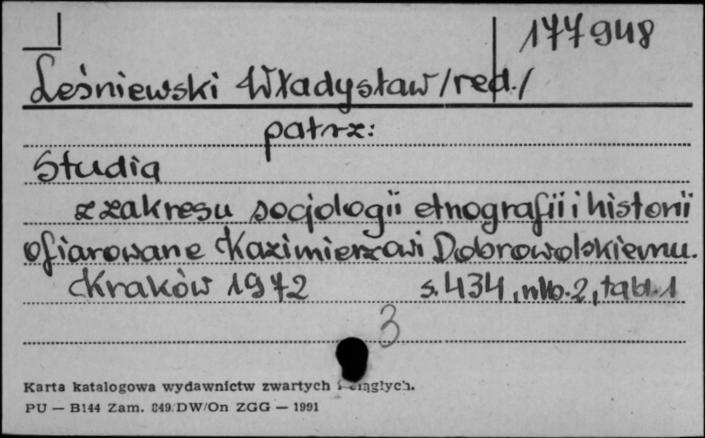 177948
Leśniewski Władysław /red./
patrz:
Studia
z zakresu socjologii etnografii i historii
ofiarowane Kazimierzowi Dobrowolskiemu.
Kraków 1972 s. 434, nlb. 2, tabl. 1
3
Karta katalogowa wydawnictw zwartych i ciągłych.
PU — B144 Zam. 849/DW/On ZGG — 1991